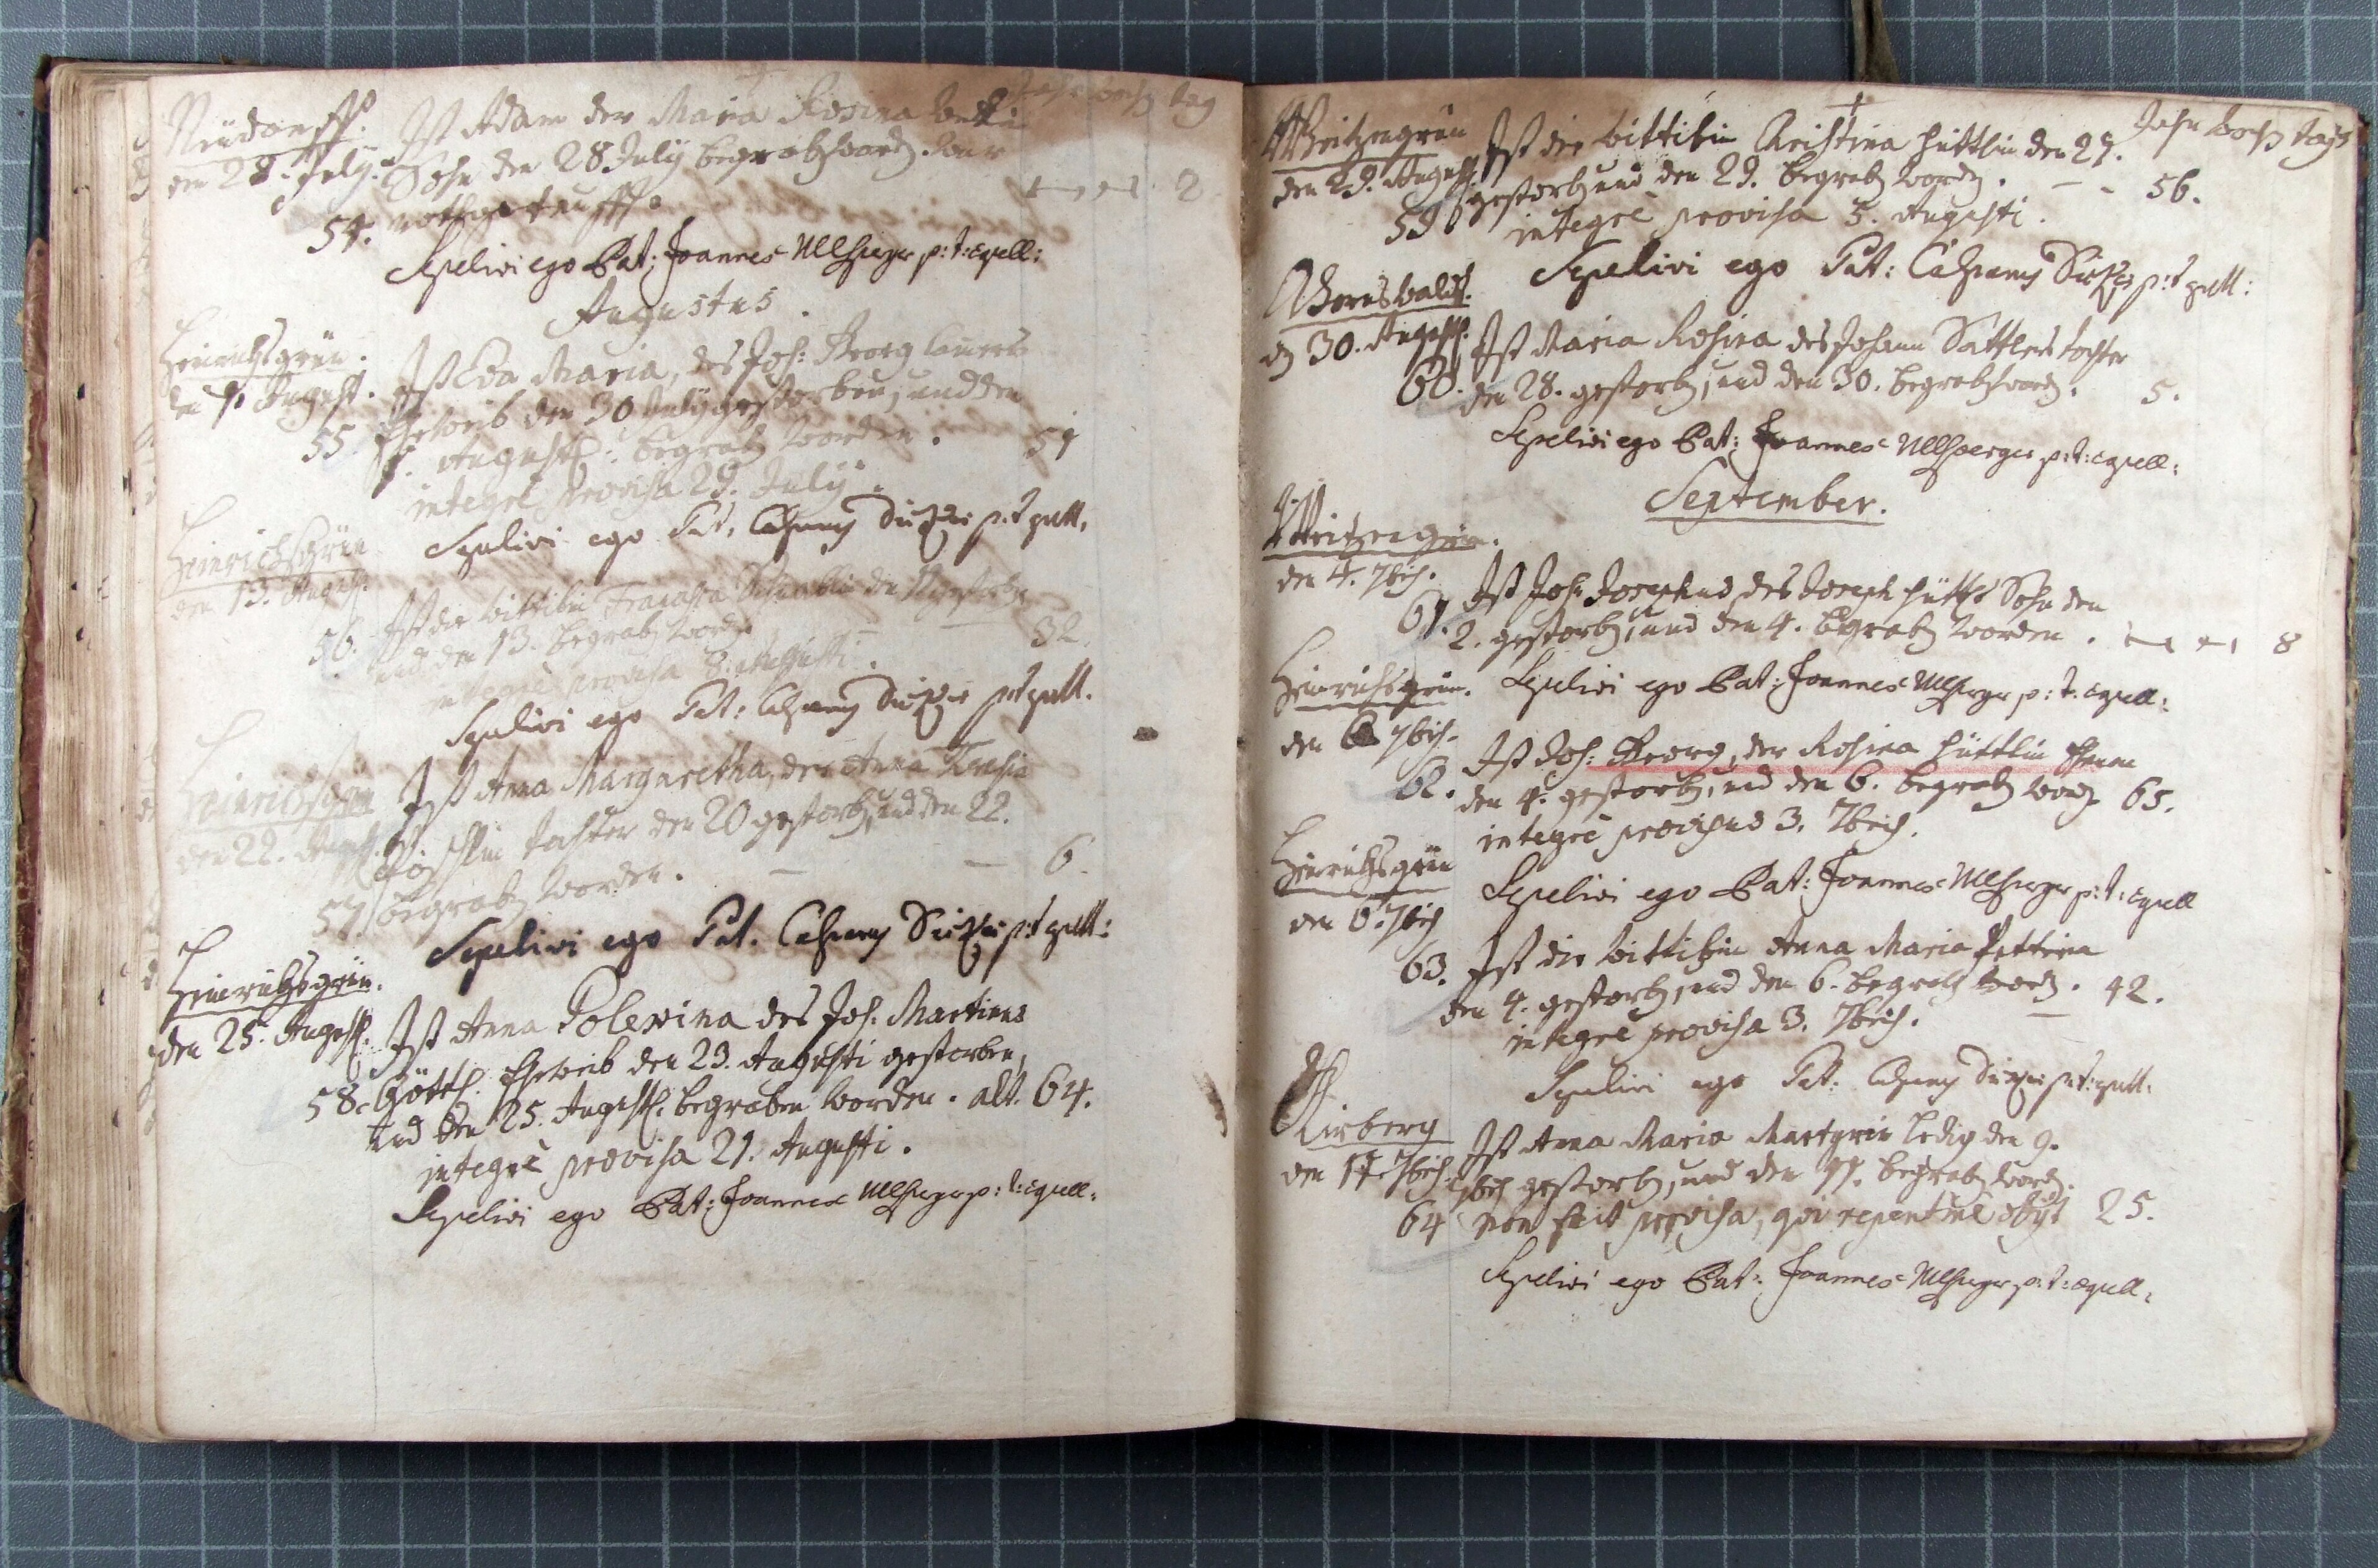 Jahr woch tag
Neüdorff.
den 28. July.
54.
Ist Adam der Maria Rosina
Sohn den 28 July begrab word. war
nothgetaufft
2
Sepelivi ego Pat: Joannes Ullsperger p: t: capell:
Augustus.
Heinrichsgrün.
den 1. August.
55.
Ist Eva Maria, des Joh: Georg
Eheweib den 30 July gestorben, und den
1. Augusti begrab worden.
51
integre provisa 29. July.
Sepelivi ego Pat. p: t
Heinrichsgrün
den 13. August.
56.
Ist die wittibin den gestorb
und den 13. begrab word.
32.
integre provisa Augusti.
Sepelivi ego Pat: p: t
Heinrichsgrün
den 22. August.
57.
Ist Anna Margaretha, der Anna
tochter den 20 gestorb, und den 22.
begrab worden.
6.
Sepelivi ego Pat. p: t
Heinrichsgrün.
den 25. August.
58.
Ist Anna Polexina des Joh. Martinus
Götth. Eheweib den 23. Augusti gestorben,
und den 25. August. begraben worden. alt. 64.
integre provisa 21. Augusti.
Sepelivi ego Pat: Joannes Ullsperger p: t: capell:
Jahr woch tags
den 29. August.
59
Ist die wittibin Christina Hüttlin den 27.
gestorb und den 29. begrab word. - - 56.
integre provisa 5. Augusti.
Sepelivi ego Pat: p: t
den 30. August.
60.
Ist Maria Rosina des Johann Sattlers tochter
den 28. gestorb, und den 30. begrab word.
5.
Sepelivi ego Pat: Joannes Ullsperger p: t: capell:
September.
den 4. 7bris.
61.
Ist Joh: Josephus des Joseph Hüttls Sohn den
2. gestorb, und den 4. begrab worden.
8
Sepelivi ego Pat: Joannes Ullsperger p: t. capell:
Heinrichsgrün.
den 6 7bris.
62.
Ist Joh: Georg, der Rosina Hüttlin Ehman
den 4. gestorb, und den 6. begrab word 65.
integre provisus 3. 7bris.
Sepelivi ego Pat: Joannes Ullsperger p: t: capell
Heinrichsgrün
den 6. 7bris
63.
Ist die wittibin Anna Maria
den 4. gestorb, und den 6. begrab word. 42.
integre provisa 3. 7bris.
Sepelivi ego Pat: p: t:
Kirberg
den 11. 7bris.
64
Ist Anna Maria ledig den 9.
7bris gestorb, und den 11. begrab word.
non fuit provisa, qvi repentine obijt 25.
Sepelivi ego Pat: Joannes Ullsperger p: t: capell: